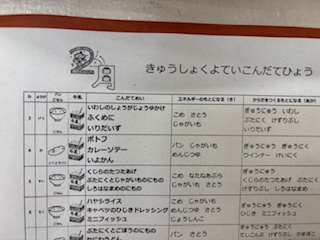 2月
きゅうしょくよていこんだてひょう
パン
ごはん
牛乳
こんだてめい
エネルギーのもとになる（き）
からだをつくるもとになる（あか）
いわしのしょうがじょうゆかけ
ふくめに
いりだいず
こめ さとう
じゃがいも
ぎゅうにゅう いわし
ぶたにく けずりぶし
いりだいず
ごはん
ポトフ
カレーソテー
いよかん
パン じゃがいも
めんじつゆ
ぎゅうにゅう ぶたにく
ウインナー けいにく
くじらのたつたあげ
ぶたにくとじゃがいものにもの
しろはなまめのにもの
こめ なたねあぶら
でんぷん じゃがいも
さとう
ぎゅうにゅう
くじらのたつたあげ ぶたにく
けずりぶし しろはなまめ
ごはん
ハヤシライス
キャベツのひじきドレッシング
ミニフィッシュ
こめ じゃがいも
めんじつゆ さとう
じょうしんこ
ぎゅうにゅう ぎゅうにく
ひじき ミニフィッシュ
ごはん
ぶたにくとごぼうのにもの
パン さとう
ぎゅうにゅう ぶたにく